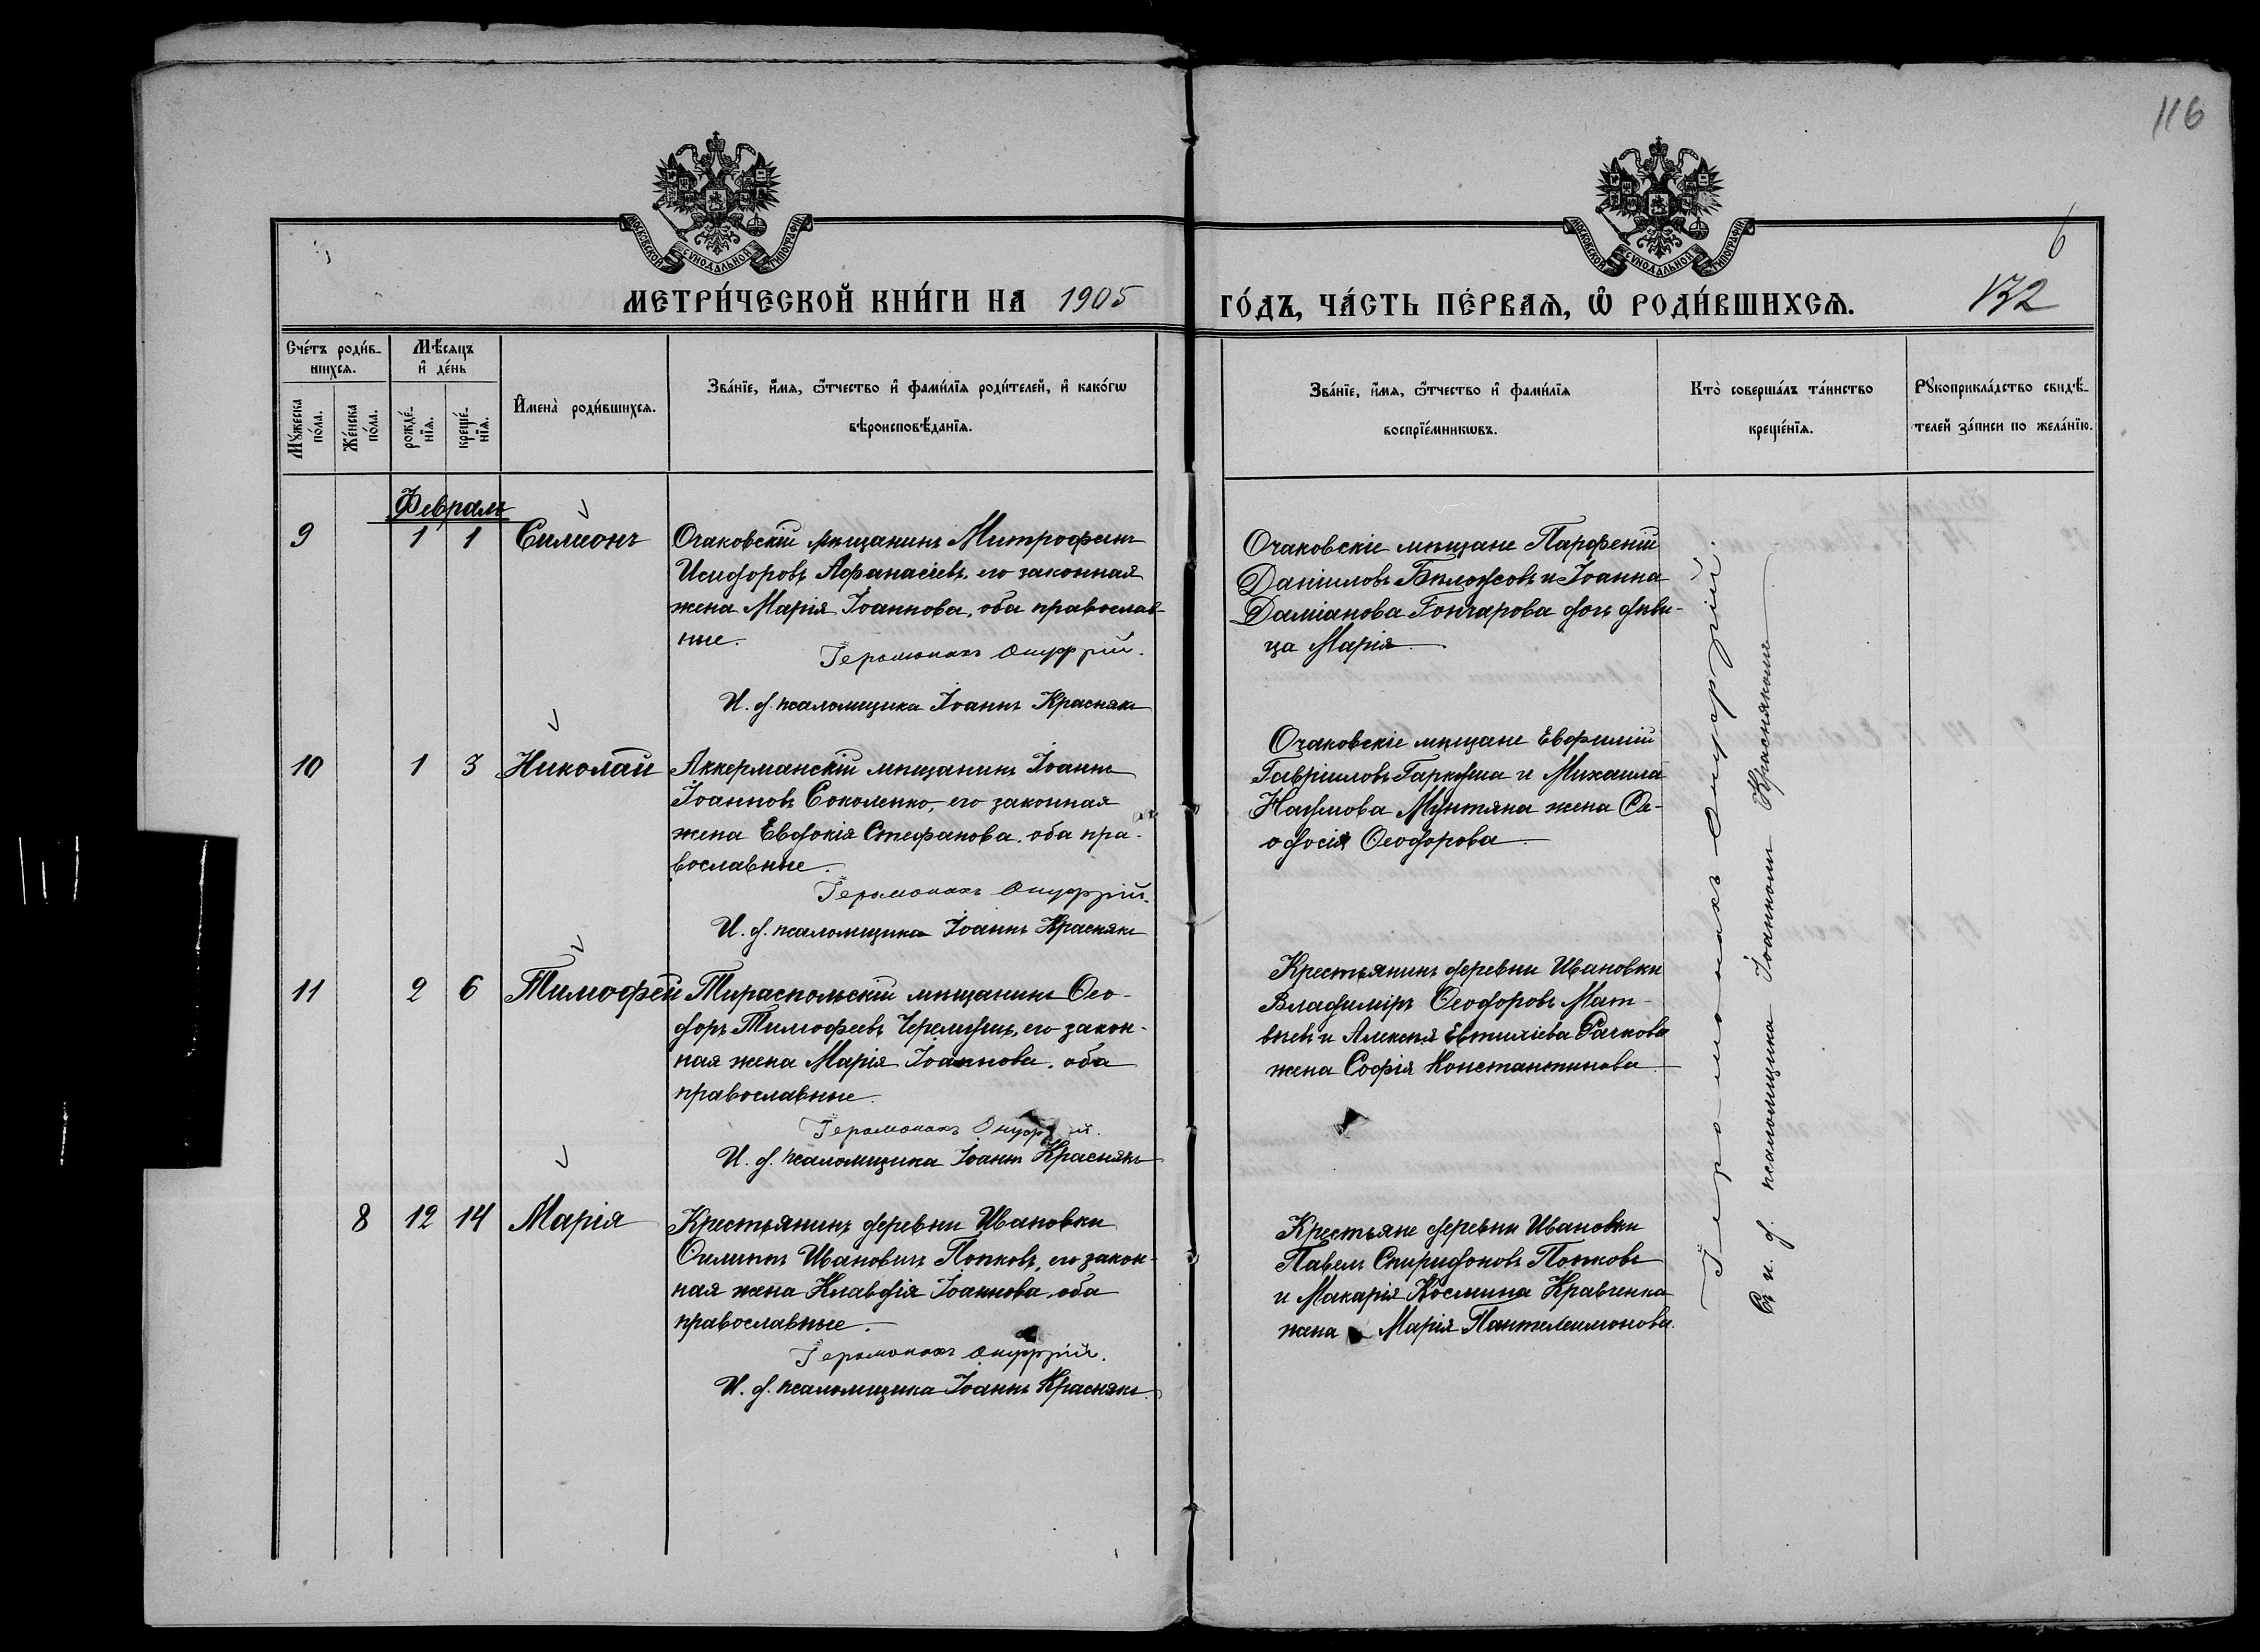 116
МОСКОВСКОЙ СѴНОДАЛЬНОЙ ТИПОГРАФІИ
МОСКОВСКОЙ СѴНОДАЛЬНОЙ ТИПОГРАФІИ
6
МЕТРИ́ЧЕСКОЙ КНИ́ГИ НА 1905
ГО́ДЪ, ЧА́СТЬ ПЕ́РВАѦ, Ѡ҆ РОДИ́ВШИХСѦ.
132
Сче́тъ роди́в-
шихсѧ.
Мꙋ́жеска
по́ла.
Же́нска
по́ла.
Мѣ́сѧцъ
и҆ де́нь
рожде́-
нїѧ.
креще́-
нїѧ.
И҆мена̀ роди́вшихсѧ.
Зва́нїе, и҆́мѧ, ѻ҆́тчество и҆ фами́лїѧ роди́телей, и҆ како́гѡ
вѣроисповѣ́данїѧ.
Зва́нїе, и҆́мѧ, ѻ҆́тчество и҆ фами́лїѧ
воспрїе́мникѡвъ.
Кто̀ соверша́лъ та́инство
креще́нїѧ.
Рꙋкоприкла́дство свидѣ́-
телей за́писи по жела́нїю.
Февраль
9 1 1 Симеонъ
Очаковскій мѣщанинъ Митрофанъ
Исидоровъ Афанасіевъ, его законная
жена Марія Іоаннова, оба православ-
ные.
Іеромонахъ Онуфрій.
И. д. псаломщика Іоаннъ Краснякъ
Очаковскіе мѣщане Парфеній
Даніиловъ Бѣлоусовъ и Іоанна
Даміанова Гончарова дочь дѣви-
ца Марія
10 1 3 Николай
Аккерманскій мѣщанинъ Іоаннъ
Іоанновъ Соколенко, его законная
жена Евдокія Стефанова, оба пра-
вославные.
Іеромонахъ Онуфрій.
И. д. псаломщика Іоаннъ Краснякъ
Очаковскіе мѣщане Евфимій
Гавріиловъ Гаркуша и Михаила
Наумова Мунтяна жена Ѳе-
одосія Ѳеодорова
11 2 6 Тимофей
Тираспольскій мѣщанинъ Ѳео-
доръ Тимофеевъ его закон-
ная жена Марія Іоаннова, оба
православные.
Іеромонахъ Онуфрій.
И. д. псаломщика Іоаннъ Краснякъ
Крестьянинъ деревни Ивановки
Владиміръ Ѳеодоровъ Мат-
вѣевъ и Алексѣя
жена Софія Константинова
8 12 14 Марія
Крестьянинъ деревни Ивановки
Филиппъ Ивановичъ Попковъ, его закон-
ная жена Клавдія Іоаннова, оба
православные.
Іеромонахъ Онуфрій.
И. д. псаломщика Іоаннъ Краснякъ
Крестьяне деревни Ивановки
Павелъ Спиридоновъ Попковъ
и Макарія Космина Кравченка
жена Марія Пантелеимонова.
Іеромонахъ Онуфрій.
Съ и. д. псаломщика Іоанномъ Краснякомъ